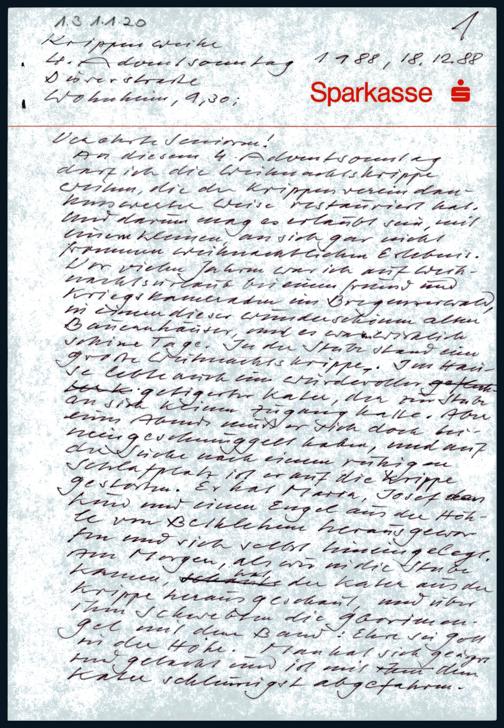 131120
1
Krippenweihe
4. Adventsonntag 1988, 18.12.88
Dürerstraße
Wohnheim, 9,30:
Sparkasse
Verehrte Senioren!
An diesem 4. Adventsonntag
darf ich die Weihnachtskrippe
weihen, die der Krippenverein dan-
kenswerter Weise restauriert hat.
Und darum mag es erlaubt sein, mit
einem kleinen, an sich gar nicht
frommen weihnachtlichen Erlebnis.
Vor vielen Jahren war ich auf Weih-
nachtsurlaub bei einem Freund und
Kriegskameraden im Bregenzerwald,
in einem dieser wunderschönen alten
Bauernhäuser, und es waren wirklich
schöne Tage. In der Stube stand eine
große Weihnachtskrippe. Im Hau-
se lebte auch ein würdevoller
getigerter Kater, der zur Stube
an sich keinen Zugang hatte. Aber
eines Abends muß er sich doch hi-
neingeschmuggelt haben, und auf
der Suche nach einem ruhigen
Schlafplatz ist er auf die Krippe
gestoßen. Er hat Maria, Josef das
Kind und einen Engel aus der Höh-
le von Bethlehem herausgewor
fen und sich selbst hineingelegt.
Am Morgen, als wir in die Stube
kamen, hat der Kater aus der
Krippe herausgeschaut, und über
ihm schwebten die Gloriaen-
gel mit dem Band: Ehre sei Gott
in der Höhe. Man hat sich
gelacht und ist mit dem
Kater schleunigst abgefahren.